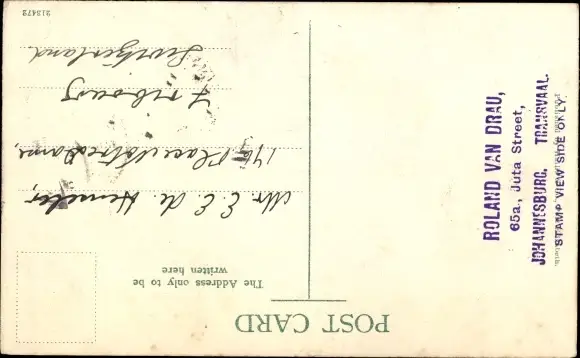 POST CARD
The Address only to be
written here
Mr. E. E. de Hemeler,
140 Place Notre Dame,
Fribourg
Switzerland
213472
ROLAND VAN DRAU,
65a., Juta Street,
JOHANNESBURG, TRANSVAAL.
STAMP VIEW SIDE ONLY.